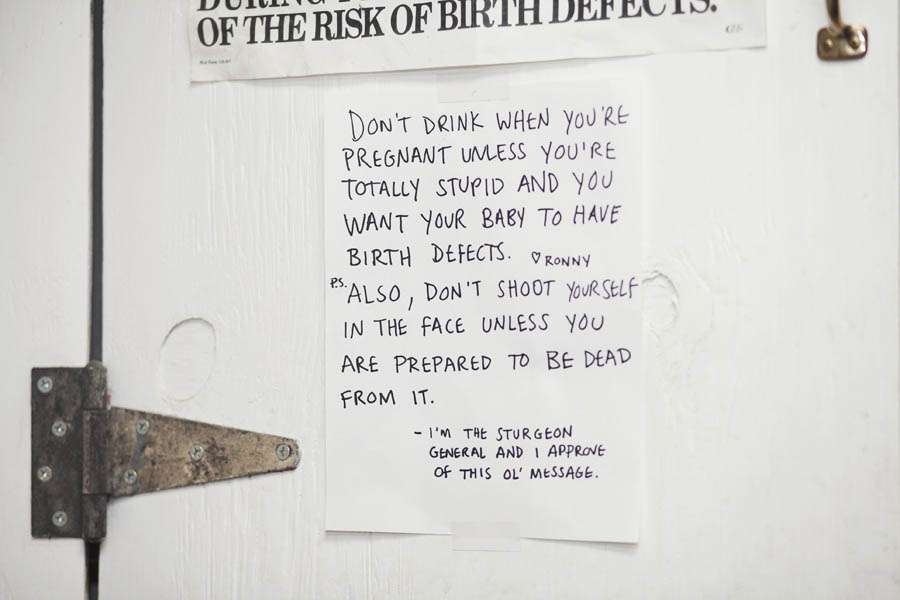 OF THE RISK OF BIRTH DEFECTS.
DON'T DRINK WHEN YOU'RE
PREGNANT UNLESS YOU'RE
TOTALLY STUPID AND YOU
WANT YOUR BABY TO HAVE
BIRTH DEFECTS. ♡ RONNY
P.S. ALSO, DON'T SHOOT YOURSELF
IN THE FACE UNLESS YOU
ARE PREPARED TO BE DEAD
FROM IT.
- I'M THE STURGEON
GENERAL AND I APPROVE
OF THIS OL' MESSAGE.